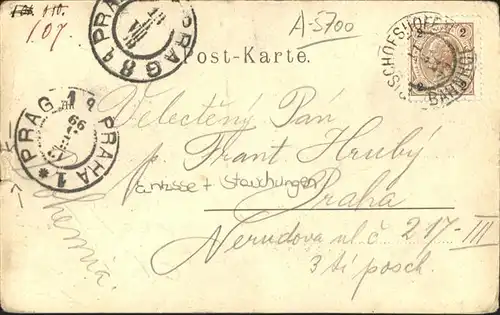 110.
107.
A-5700
PRAG 8 PRAHA
Post-Karte.
BISCHOFSHOFEN BAHNHOF
2
2
PRAG PRAHA 1
99
Velectěný Pán
p. Frant Hrubý
Einrisse + Stauchungen
Praha
Nerudova ul č 217-III
3tí posch.